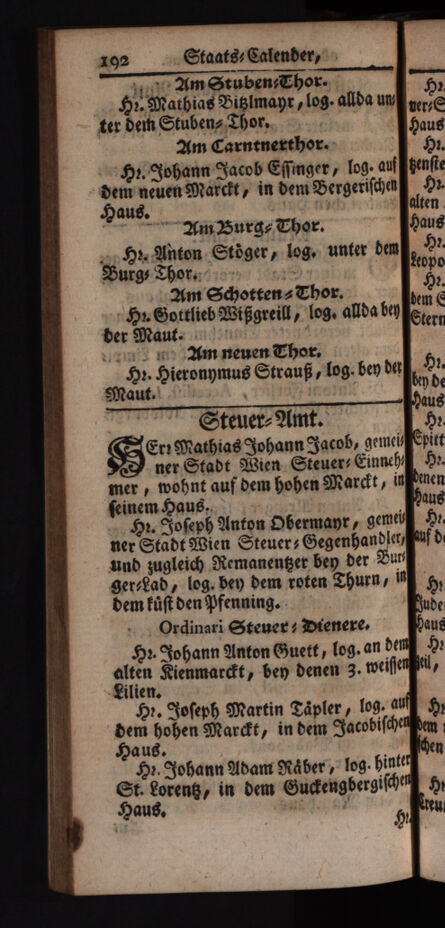 192 Staats-Calender,
Am Stuben-Thor.
Hr. Mathias Bitzlmayr, log. allda un-
ter dem Stuben-Thor.
Am Carntnerthor.
Hr. Johann Jacob Essinger, log. auf
dem neuen Marckt, in dem Bergerischen
Haus.
Am Burg-Thor.
Hr. Anton Stöger, log. unter dem
Burg-Thor.
Am Schotten-Thor.
Hr. Gottlieb Wißgreill, log. allda bey
der Maut.
Am neuen Thor.
Hr. Hieronymus Strauß, log. bey der
Maut.
Steuer-Amt.
HErr Mathias Johann Jacob, gemei-
ner Stadt Wien Steuer-Einneh-
mer, wohnt auf dem hohen Marckt, in
seinem Haus.
Hr. Joseph Anton Obermayr, gemei-
ner Stadt Wien Steuer-Gegenhandler,
und zugleich Remanentzer bey der Bur-
ger-Lad, log. bey dem roten Thurn, in
dem küst den Pfenning.
Ordinari Steuer-Dienere.
Hr. Johann Anton Guett, log. an dem
alten Kienmarckt, bey denen 3. weissen
Lilien.
Hr. Joseph Martin Täpler, log. auf
dem hohen Marckt, in dem Jacobischen
Haus.
Hr. Johann Adam Räber, log. hinter
St. Lorentz, in dem Guckengbergischen
Haus.
Hr.